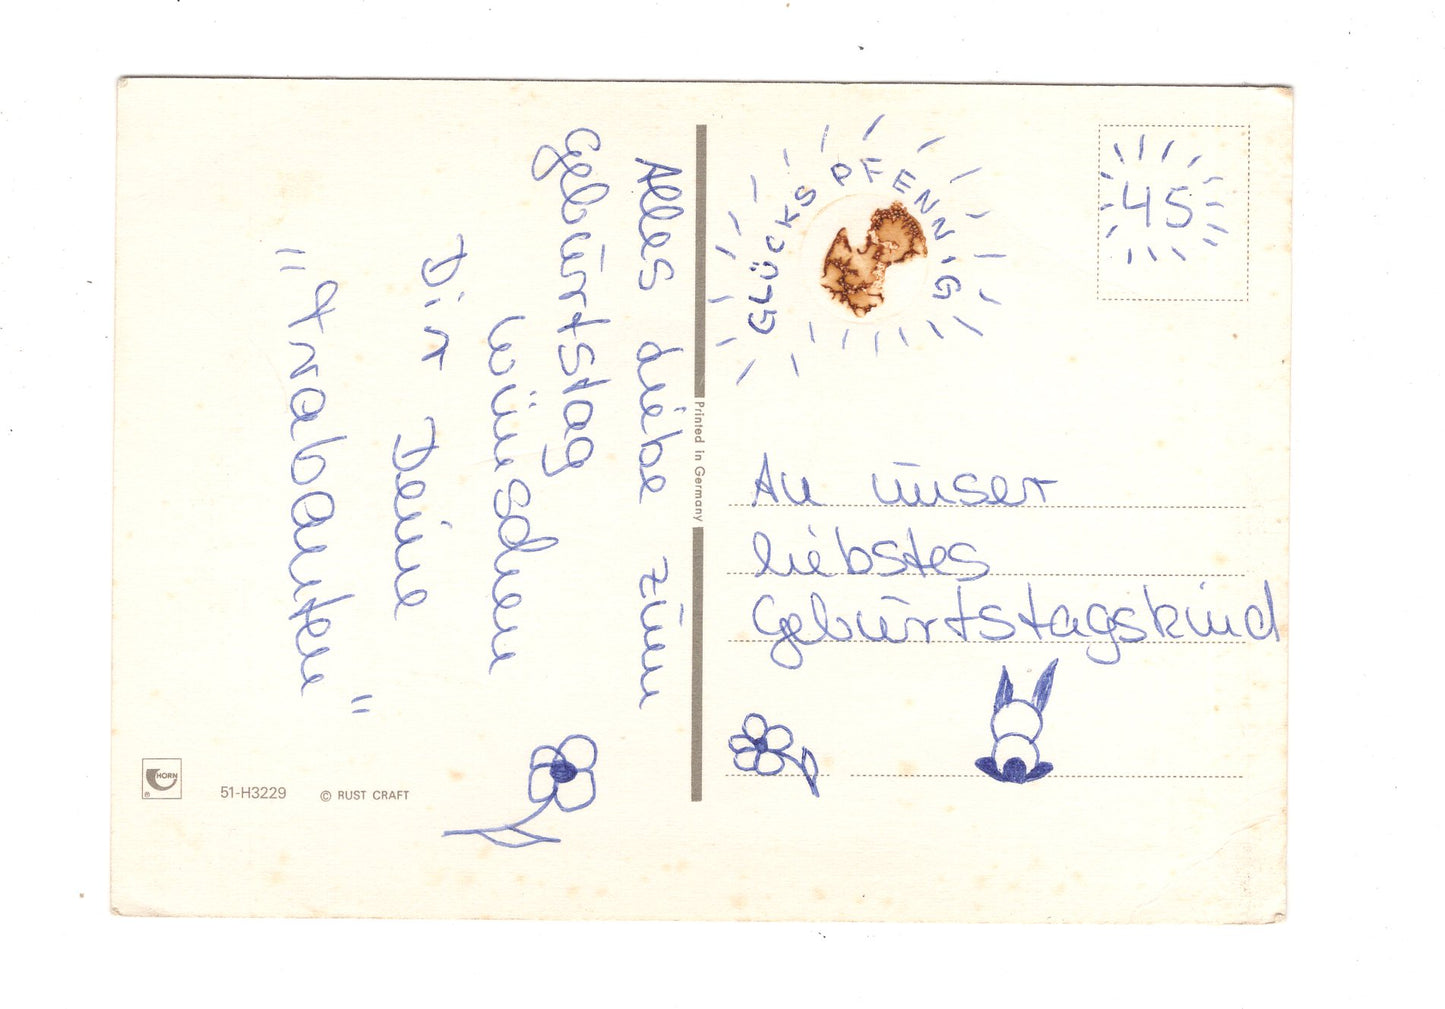 Alles Liebe zum
Geburtstag
wünschen
Dir Deine
"Trabanten"
HORN
®
51-H3229 © RUST CRAFT
Printed in Germany
GLÜCKSPFENNIG
45
An unser
liebstes
Geburtstagskind